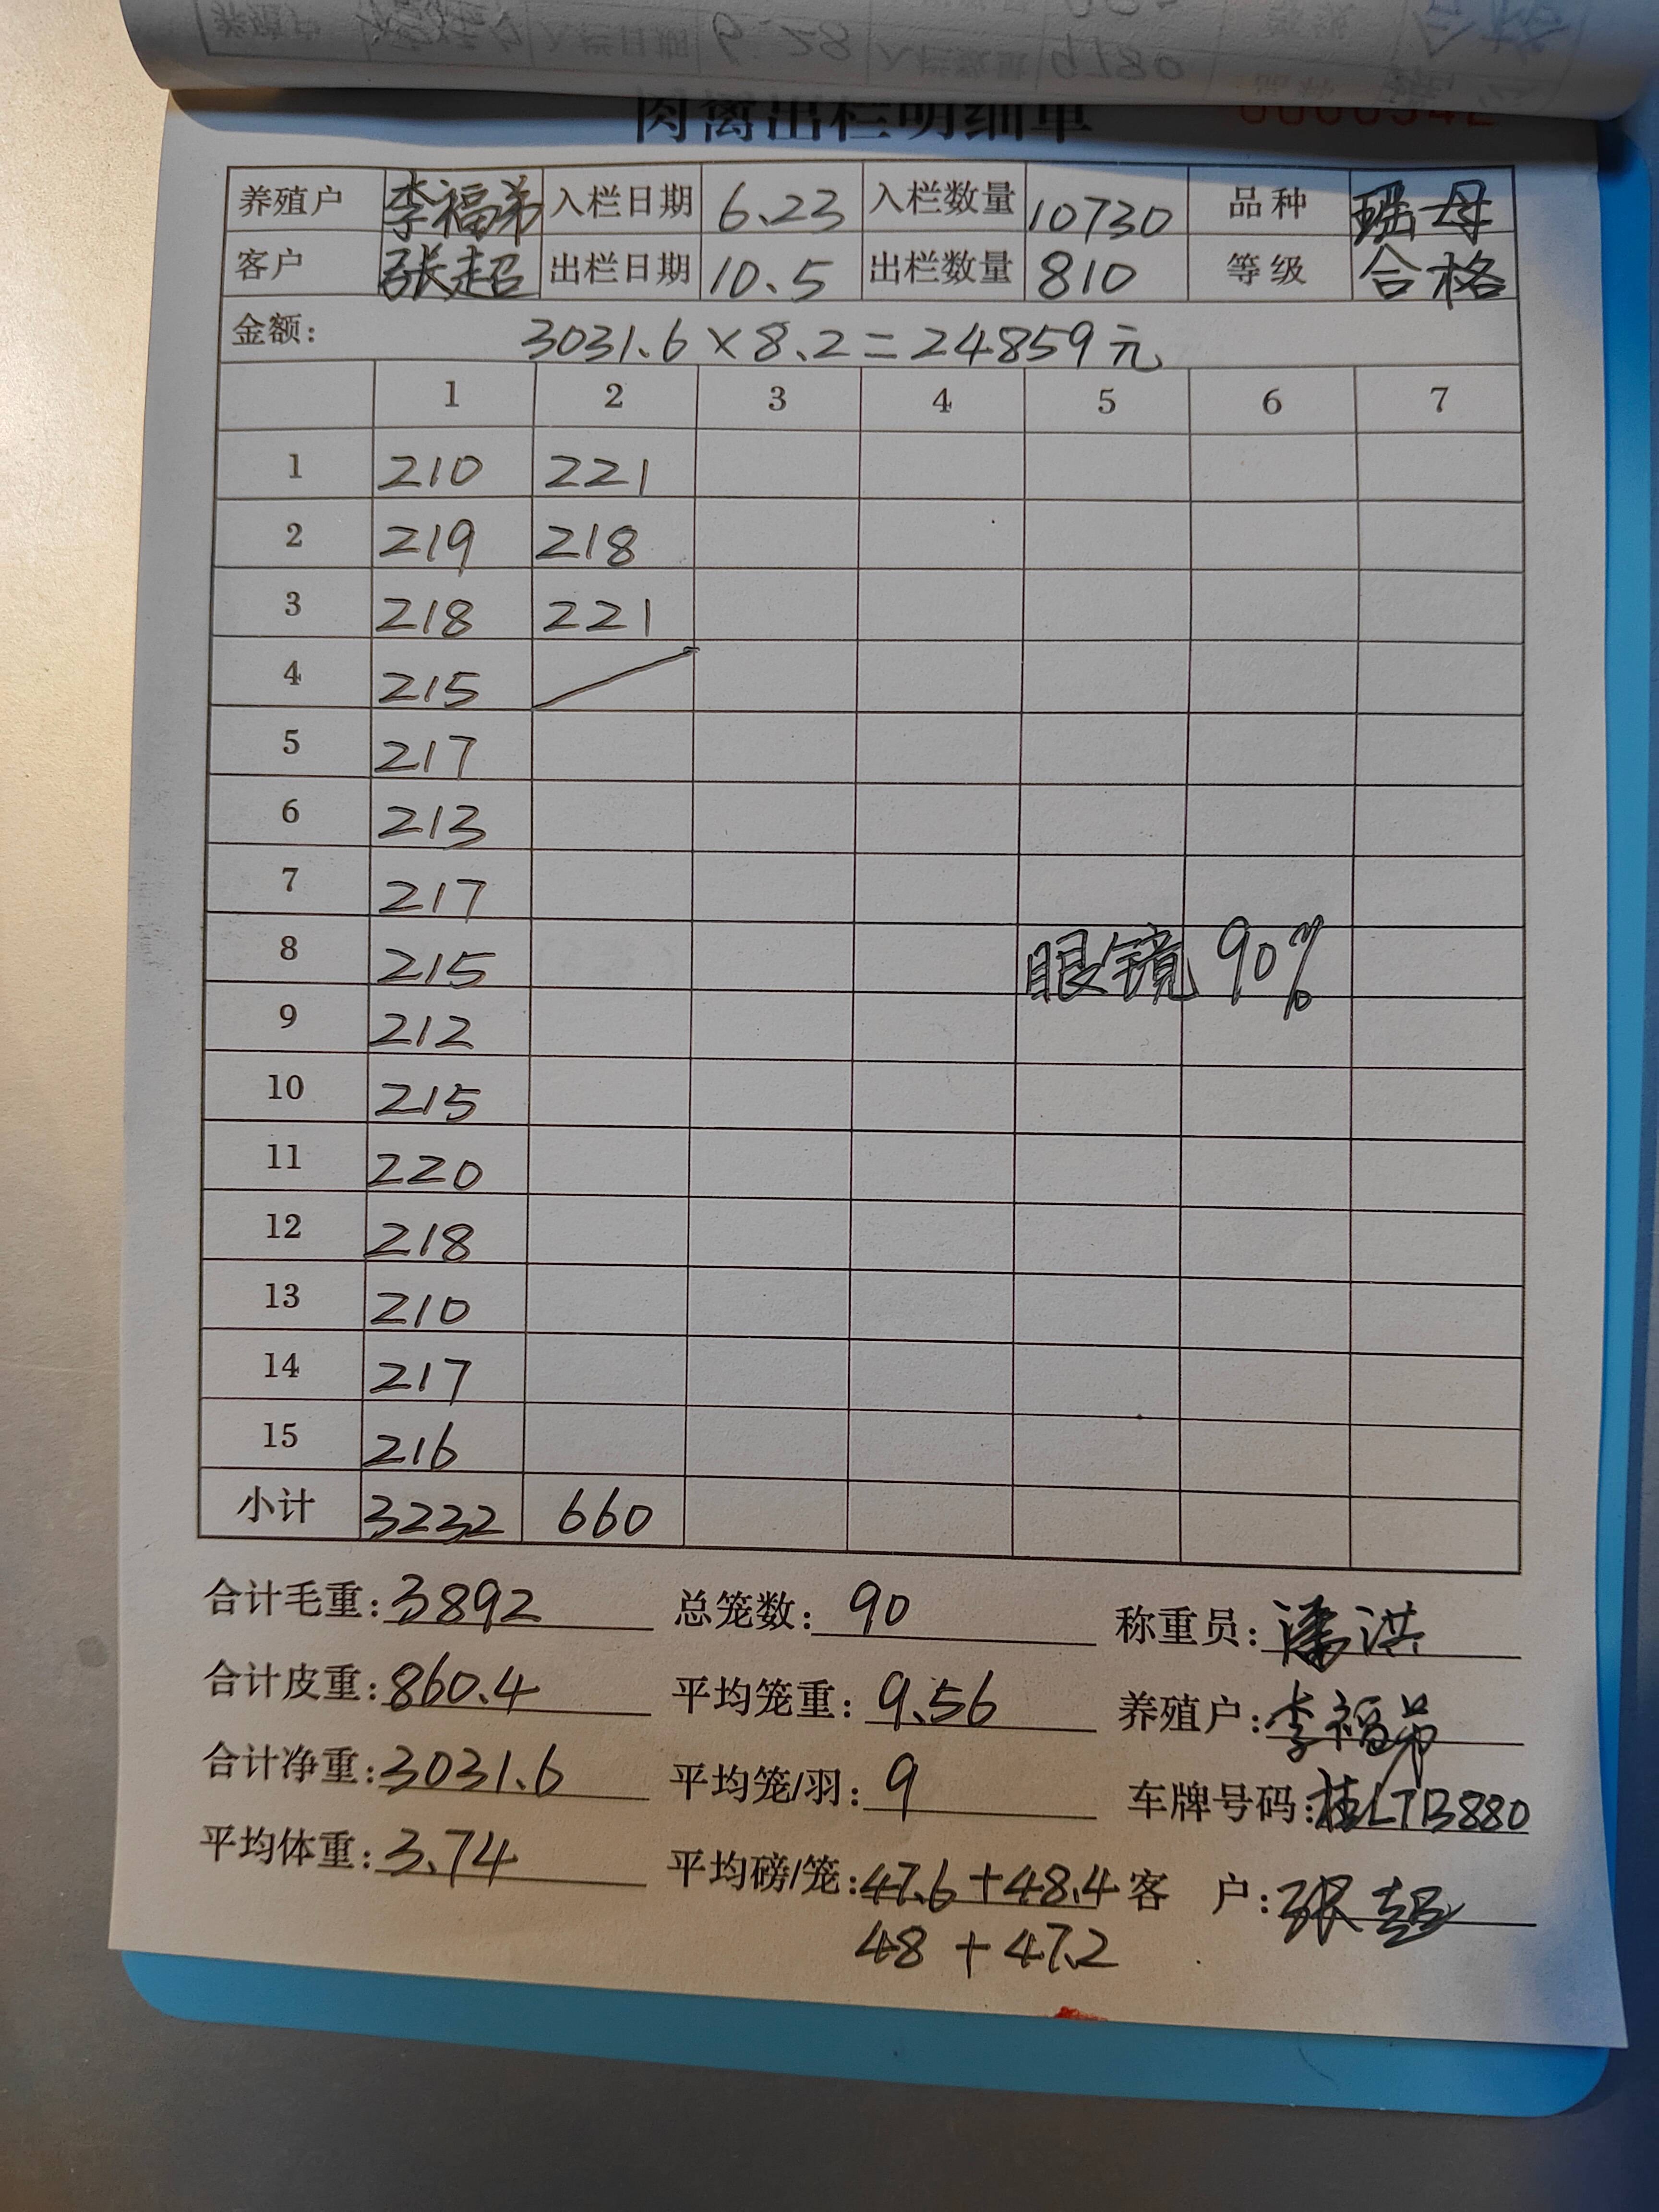 肉禽出栏明细单
养殖户 李福弟 入栏日期 6.23 入栏数量 10730 品种 瑶母
客户 张超 出栏日期 10.5 出栏数量 810 等级 合格
金额: 3031.6×8.2=24859元
1 2 3 4 5 6 7
1 210 221
2 219 218
3 218 221
4 215
5 217
6 213
7 217
8 215 眼镜 90%
9 212
10 215
11 220
12 218
13 210
14 217
15 216
小计 3232 660
合计毛重:3892 总笼数:90 称重员:潘洪
合计皮重:860.4 平均笼重:9.56 养殖户:李福弟
合计净重:3031.6 平均笼/羽:9 车牌号码:桂LTB880
平均体重:3.74 平均磅/笼:47.6+48.4 客 户:张超
48+47.2